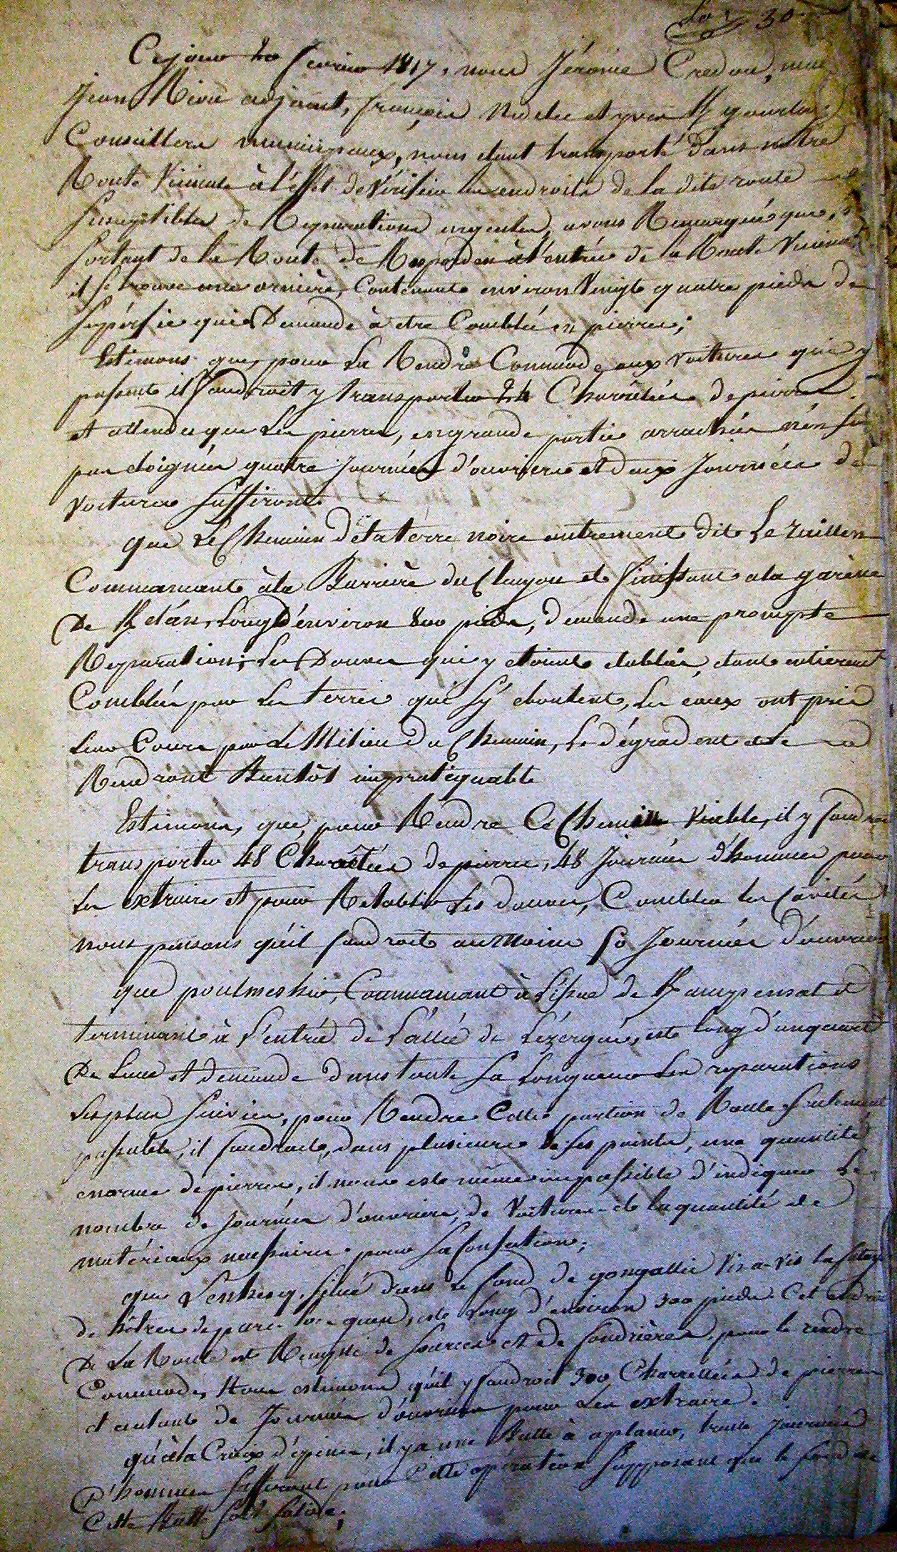 30
Ce jour 20 fevrier 1817, nous Jérome Credou, maire
jean Riou adjoint, françois Nédelec et yves K/gourlay
Conseillers municipaux, nous etant transporté dans notre
Route Vicinale à l'effet de Vérifier les endroits de la dite route
susceptibles de Réparations urgentes, avons Remarqué que,
Sortant de la Route de Rosporden à l'entrée de la Route Vicinale
il se trouve une ornière, Contenante environ Vingt quatre pieds de
Supérficie qui Demande à etre Comblée en pierres;
Estimons que, pour La Rendre Commode aux voitures qui y
passent il faudroit y transporter 24 Charretées de pierres
et attendu que les pierres, en grande partie arrachées n'en sont
pas eloignées quatre journées d'ouvriers et deux Journées de
Voitures suffiront
que le Chemin de la terre noire autrement dit Le
Commancant à la Barrière du Cleuyou et finissant a la garène
De K/dán, Long d'environ 800 pieds, demande une prompte
Réparation, Les Douves qui y etoient etablies, etant entierement
Comblées par les terres qui s'y eboulent, Les eaux ont pris
Leur Cours par Le Milieu du Chemin, Le dégradent et le
Rendront Bientôt impratiquable
Estimons, que, pour Rendre Ce Chemin viable, il y faudroit
transporter 48 Charretées de pierres, 48 Journées d'hommes pour
Les extraire et pour Retablir Les douves, Combler les Cavités
nous pensons qu'il faudroit au moins 50 Journées d'ouvriers
que poulmeskio, Commancant à l'issue de K/amporensal et
terminant à L'entrée de L'allée de Lézergué, est long d'un quart
De Lieue et demande dans toute sa Longueur Les reparations
Les plus suivies, pour Rendre Cette portion de Route seulement
passable, il faudroit, dans plusieurs de ses points, une quantité
enorme de pierres, il nous est même impossible d'indiquer Le
nombre de journées d'ouvriers, de Voitures et la quantité de
matériaux necessaires pour sa
que situé dans Le fond de gongallic Vis-a-Vis la
de est Long d'environ 300 pieds Cet endroit
De La Route est Rempli de sources et de fondrières. pour le rendre
Commode, Nous estimons qu'il y faudroit 300 Charretées de pierres
et autant de Journées d'ouvriers pour Les extraire.
qu'à la Croix d'épines, il y a une Butte à aplanir, trente journées
D'hommes suffiront pour Cette opération supposant que le fond de
Cette Butte soit solide;